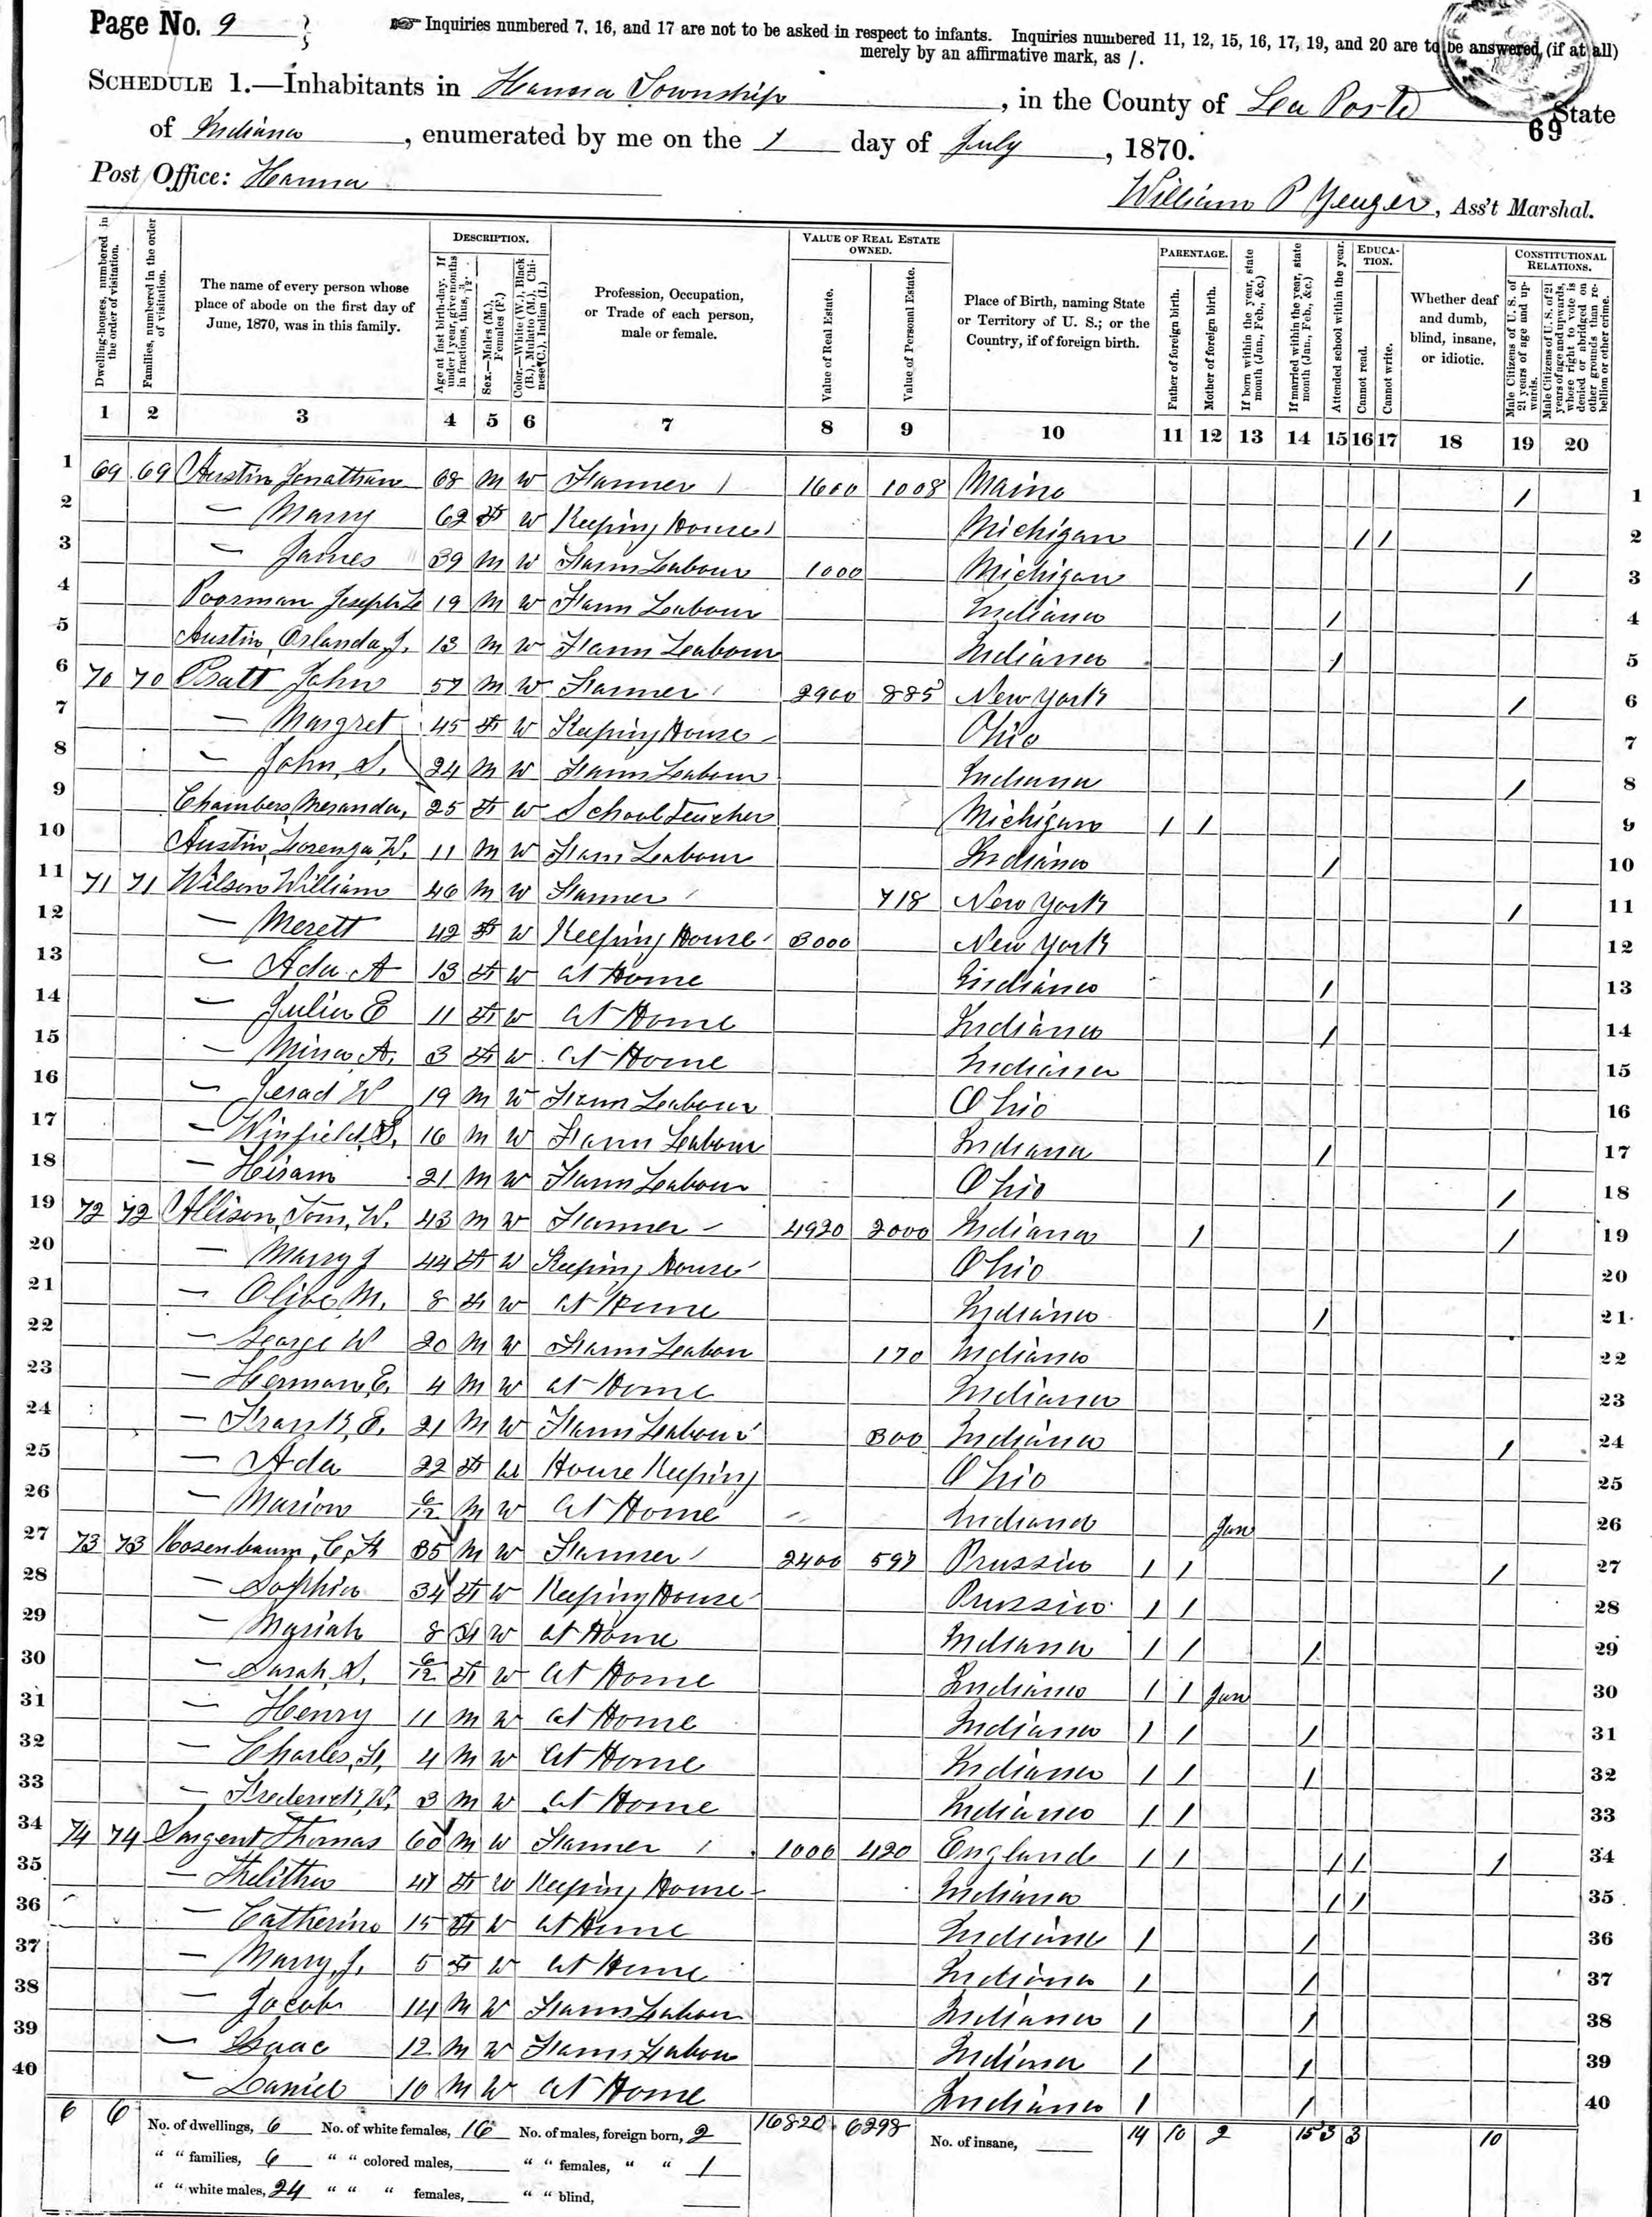 Page No. 9
☞ Inquiries numbered 7, 16, and 17 are not to be asked in respect to infants. Inquiries numbered 11, 12, 15, 16, 17, 19, and 20 are to be answered (if at all)
merely by an affirmative mark, as /.
SCHEDULE 1.—Inhabitants in Hanna Township, in the County of La Porte State
69
of Indiana, enumerated by me on the 1 day of July, 1870.
Post Office: Hanna
William P Yeager, Ass't Marshal.
Dwelling-houses, numbered in the order of visitation.
Families, numbered in the order of visitation.
The name of every person whose place of abode on the first day of June, 1870, was in this family.
DESCRIPTION.
Age at last birth-day. If under 1 year, give months in fractions, thus, 3/12.
Sex.—Males (M.), Females (F.)
Color.—White (W.), Black (B.), Mulatto (M.), Chinese (C.), Indian (I.)
Profession, Occupation, or Trade of each person, male or female.
VALUE OF REAL ESTATE OWNED.
Value of Real Estate.
Value of Personal Estate.
Place of Birth, naming State or Territory of U. S.; or the Country, if of foreign birth.
PARENTAGE.
Father of foreign birth.
Mother of foreign birth.
If born within the year, state month (Jan., Feb., &c.)
If married within the year, state month (Jan., Feb., &c.)
Attended school within the year.
EDUCATION.
Cannot read.
Cannot write.
Whether deaf and dumb, blind, insane, or idiotic.
CONSTITUTIONAL RELATIONS.
Male Citizens of U. S. of 21 years of age and upwards.
Male Citizens of U. S. of 21 years of age and upwards, whose right to vote is denied or abridged on other grounds than rebellion or other crime.
1 2 3 4 5 6 7 8 9 10 11 12 13 14 15 16 17 18 19 20
1 69 69 Austin Jonathan 68 M W Farmer 1600 1008 Maine / 1
2 — Marry 62 F W Keeping House Michigan / / 2
3 — James 39 M W Farm Labour 1000 Michigan / 3
4 Poorman Joseph L 19 M W Farm Labour Indiana / 4
5 Austin, Orlando J. 13 M W Farm Labour Indiana / 5
6 70 70 Pratt John 57 M W Farmer 2900 885 New York / 6
7 — Margret 45 F W Keeping House Ohio 7
8 — John, S. 24 M W Farm Labour Indiana / 8
9 Chambers, Meranda, 25 F W School Teacher Michigan / / 9
10 Austin, Lorenzo W. 11 M W Farm Labour Indiana / 10
11 71 71 Wilson William 46 M W Farmer 718 New York / 11
12 — Merett 42 F W Keeping House 3000 New York 12
13 — Ada A 13 F W at Home Indiana / 13
14 — Julia E 11 F W At Home Indiana / 14
15 — Mina A. 3 F W At Home Indiana 15
16 — Jerad W 19 M W Farm Labour Ohio 16
17 — Winfield S. 16 M W Farm Labour Indiana / 17
18 — Hiram 21 M W Farm Labour Ohio / 18
19 72 72 Allison, Tom, W. 43 M W Farmer 4920 2000 Indiana / / 19
20 — Marry J 44 F W Keeping House Ohio 20
21 — Olive M. 8 F W At Home Indiana / 21
22 — George W 20 M W Farm Labour 170 Indiana 22
23 — Herman, E. 4 M W at Home Indiana 23
24 — Frank, E. 21 M W Farm Labour 300 Indiana / 24
25 — Ada 22 F W House Keeping Ohio 25
26 — Marion 6/12 M W At Home Indiana Jan 26
27 73 73 Rosenbaum, C, F 35 M W Farmer 2400 597 Prussia / / / 27
28 — Sophia 34 F W Keeping House Prussia / / 28
29 — Mariah 8 F W at Home Indiana / / / 29
30 — Sarah, S. 6/12 F W At Home Indiana / / Jan 30
31 — Henry 11 M W at Home Indiana / / / 31
32 — Charles, F. 4 M W At Home Indiana / / / 32
33 — Frederick W. 3 M W At Home Indiana / / 33
34 74 74 Sargent Thomas 60 M W Farmer 1000 420 England / / / / / 34
35 — Thelitha 41 F W Keeping House Indiana / / 35
36 — Catherine 15 F W At Home Indiana / / 36
37 — Marry, J. 5 F W At Home Indiana / / 37
38 — Jacob 14 M W Farm Labour Indiana / / 38
39 — Isaac 12 M W Farm Labour Indiana / / 39
40 — Daniel 10 M W At Home Indiana / / 40
6 6 No. of dwellings, 6 No. of white females, 16 No. of males, foreign born, 2 16820 6298 No. of insane, 14 10 2 15 3 3 10
" " families, 6 " " colored males, " " females, " " 1
" " white males, 24 " " " females, " " blind,